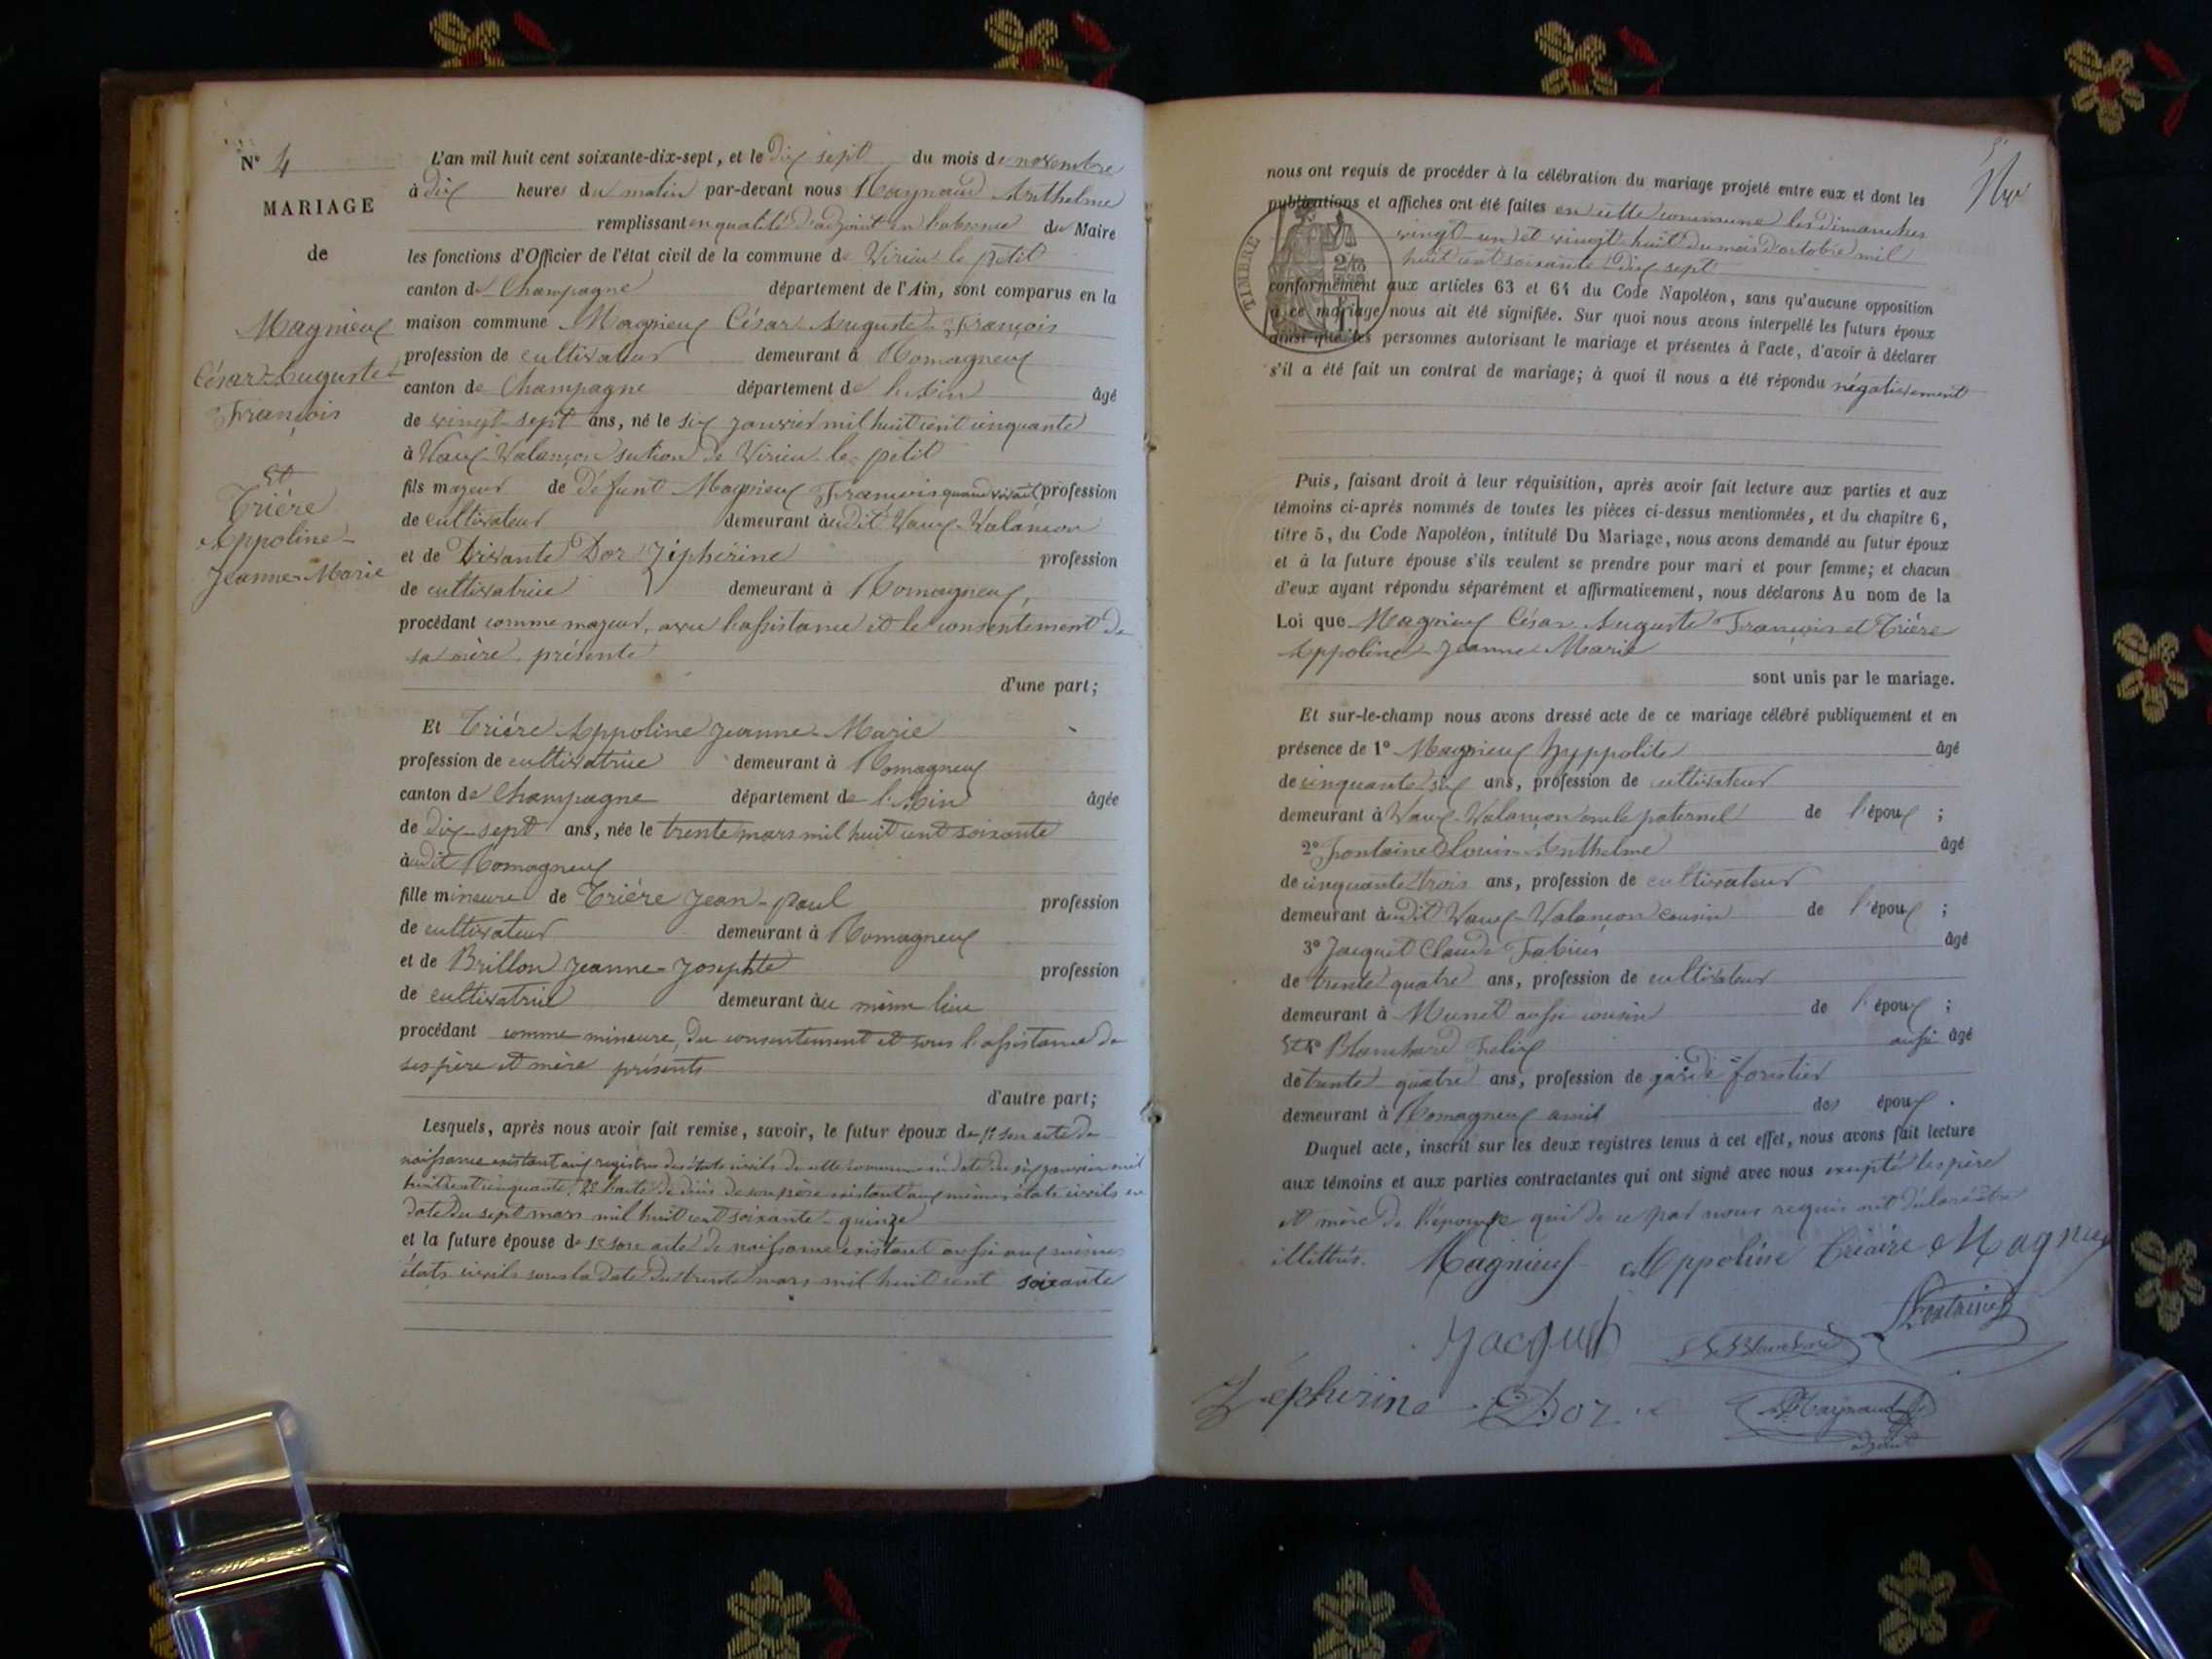 N° 4
MARIAGE
de
Magnieux
César-Auguste
François
Et
Trière
Appoline
Jeanne-Marie
L'an mil huit cent soixante-dix-sept, et le dix sept du mois de novembre
à dix heures du matin par-devant nous Raynaud Anthelme
remplissant en qualité d'adjoint en l'absence du Maire
les fonctions d'Officier de l'état civil de la commune de Virieu le petit
canton de Champagne département de l'Ain, sont comparus en la
maison commune Magnieux César Auguste François
profession de cultivateur demeurant à Romagneux
canton de Champagne département de l'Ain âgé
de vingt-sept ans, né le six janvier mil huit cent cinquante
à Vaux-Valançon section de Virieu-le-petit
fils majeur de défunt Magnieux François quand vivait profession
de cultivateur demeurant audit Vaux-Valançon
et de Vivante Dor Zéphérine profession
de cultivatrice demeurant à Romagneux,
procédant comme majeur, avec l'assistance et le consentement de
sa mère présente
d'une part;
Et Trière Appoline Jeanne-Marie
profession de cultivatrice demeurant à Romagneux
canton de Champagne département de l'Ain âgée
de dix-sept ans, née le trente mars mil huit cent soixante
audit Romagneux
fille mineure de Trière Jean-Paul profession
de cultivateur demeurant à Romagneux
et de Brillon Jeanne-Josephte profession
de cultivatrice demeurant au même lieu
procédant comme mineure, du consentement et sous l'assistance de
ses père et mère présents
d'autre part;
Lesquels, après nous avoir fait remise, savoir, le futur époux de 1° son acte de
naissance existant aux registres des états civils de cette commune en date du six janvier mil
huit cent cinquante, 2° l'acte de décès de son père existant aux mêmes états civils en
date du sept mars mil huit cent soixante-quinze
et la future épouse de 1° son acte de naissance existant aussi aux mêmes
états civils sous la date du trente mars mil huit cent soixante
nous ont requis de procéder à la célébration du mariage projeté entre eux et dont les
publications et affiches ont été faites en cette commune les dimanches
vingt-un et vingt-huit du mois d'octobre mil
huit cent soixante-dix sept
TIMBRE
conformément aux articles 63 et 64 du Code Napoléon, sans qu'aucune opposition
à ce mariage nous ait été signifiée. Sur quoi nous avons interpellé les futurs époux
ainsi que les personnes autorisant le mariage et présentes à l'acte, d'avoir à déclarer
s'il a été fait un contrat de mariage; à quoi il nous a été répondu négativement
Puis, faisant droit à leur réquisition, après avoir fait lecture aux parties et aux
témoins ci-après nommés de toutes les pièces ci-dessus mentionnées, et du chapitre 6,
titre 5, du Code Napoléon, intitulé Du Mariage, nous avons demandé au futur époux
et à la future épouse s'ils veulent se prendre pour mari et pour femme; et chacun
d'eux ayant répondu séparément et affirmativement, nous déclarons Au nom de la
Loi que Magnieux César Auguste François et Trière
Appoline Jeanne Marie
sont unis par le mariage.
Et sur-le-champ nous avons dressé acte de ce mariage célébré publiquement et en
présence de 1° Magnieux Hyppolite âgé
de cinquante six ans, profession de cultivateur
demeurant à Vaux-Valançon oncle paternel de l'époux ;
2° Fontaine Louis-Anthelme âgé
de cinquante trois ans, profession de cultivateur
demeurant audit Vaux-Valançon cousin de l'époux ;
3° Jacquet Claude Fabius âgé
de trente quatre ans, profession de cultivateur
demeurant à Munet aussi cousin de l'époux ;
Et 4° Blanchard Felix aussi âgé
de trente quatre ans, profession de garde-forestier
demeurant à Romagneux ami des époux .
Duquel acte, inscrit sur les deux registres tenus à cet effet, nous avons fait lecture
aux témoins et aux parties contractantes qui ont signé avec nous excepté les père
et mère de l'épouse qui de ce par nous requis ont déclaré être
illettrés. Magnieux Appoline Triaire Magnieux
Jacquet Blanchard Fontaine
Zéphirine Dor Raynaud
adjoint